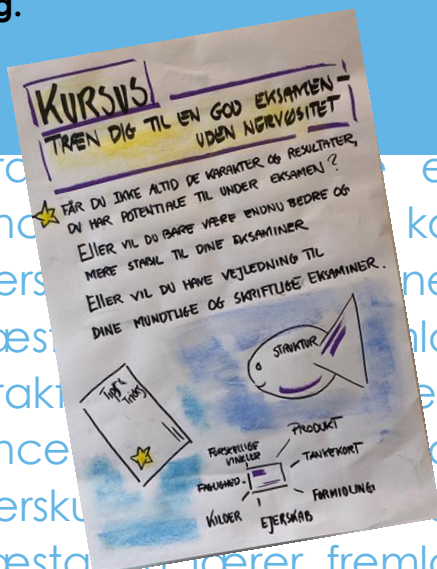 g.
KURSUS
TRÆN DIG TIL EN GOD EKSAMEN -
UDEN NERVØSITET
FÅR DU IKKE ALTID DE KARAKTER OG RESULTATER,
DU HAR POTENTIALE TIL UNDER EKSAMEN?
ELLER VIL DU BARE VÆRE ENDNU BEDRE OG
MERE STABIL TIL DINE EKSAMINER
ELLER VIL DU HAVE VEJLEDNING TIL
DINE MUNDTLIGE OG SKRIFTLIGE EKSAMINER.
STRUKTUR
Tips &
Tricks
PRODUKT
FORSKELLIGE
VINKLER
TANKEKORT
FORMIDLING
KILDER
EJERSKAB
lærer fremlo